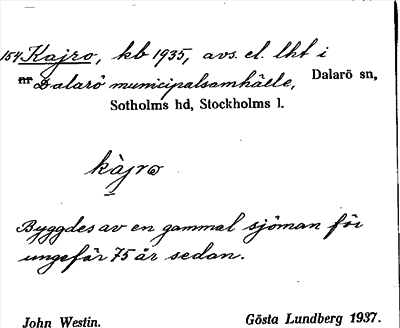 154 Kajro, kb 1935, avs. el. lht i
nr Dalarö municipalsamhälle, Dalarö sn,
Sotholms hd, Stockholms l.
kàjrω
Byggdes av en gammal sjöman för
ungefär 75 år sedan.
John Westin. Gösta Lundberg 1937.